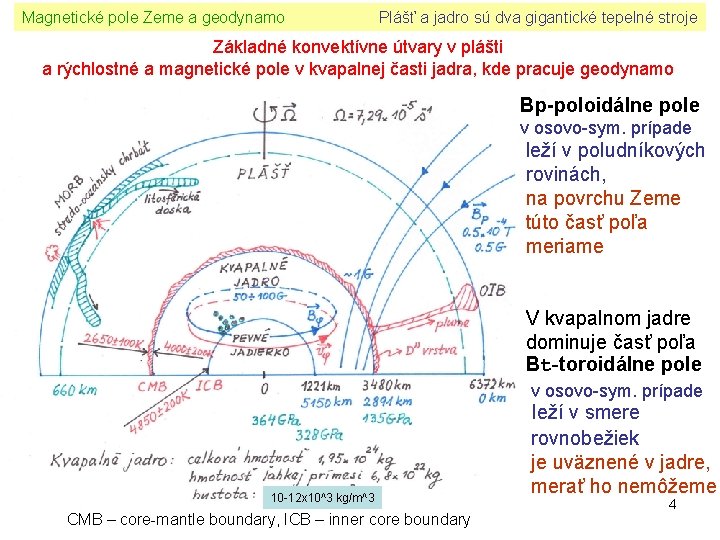 Magnetické pole Zeme a geodynamo
Plášť a jadro sú dva gigantické tepelné stroje
Základné konvektívne útvary v plášti
a rýchlostné a magnetické pole v kvapalnej časti jadra, kde pracuje geodynamo
Ω Ω = 7,29 x 10⁻⁵ s⁻¹
MORB
stredo-oceánsky chrbát
PLÁŠŤ
litosférická
doska
Bp
0.5 x 10⁻⁴ T
0.5 G
KVAPALNÉ
JADRO
50 ÷ 100G
~1G
OIB
Bφ
PEVNÉ
JADIERKO
vφ
plume
D" vrstva
2650±100K
4000±200K
4850±200K
660 km CMB ICB 0 1221km 3480km 6372km
5150 km 2891km 0 km
364GPa 135GPa
328 GPa
Kvapalné jadro: celková hmotnosť 1,95 x 10²⁴ kg
hmotnosť ľahkej prímesi 6,8 x 10²² kg
hustota: 10-12x10^3 kg/m^3
CMB – core-mantle boundary, ICB – inner core boundary
Bp-poloidálne pole
v osovo-sym. prípade
leží v poludníkových
rovinách,
na povrchu Zeme
túto časť poľa
meriame
V kvapalnom jadre
dominuje časť poľa
Bt-toroidálne pole
v osovo-sym. prípade
leží v smere
rovnobežiek
je uväznené v jadre,
merať ho nemôžeme
4